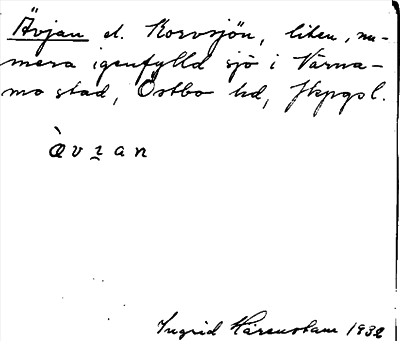 Ävjan el. Korvsjön, liten, nu-
mera igenfylld sjö i Värna-
mo stad, Östbo hd, Jkpgs l.
àvɿan
Ingrid Härenstam 1932